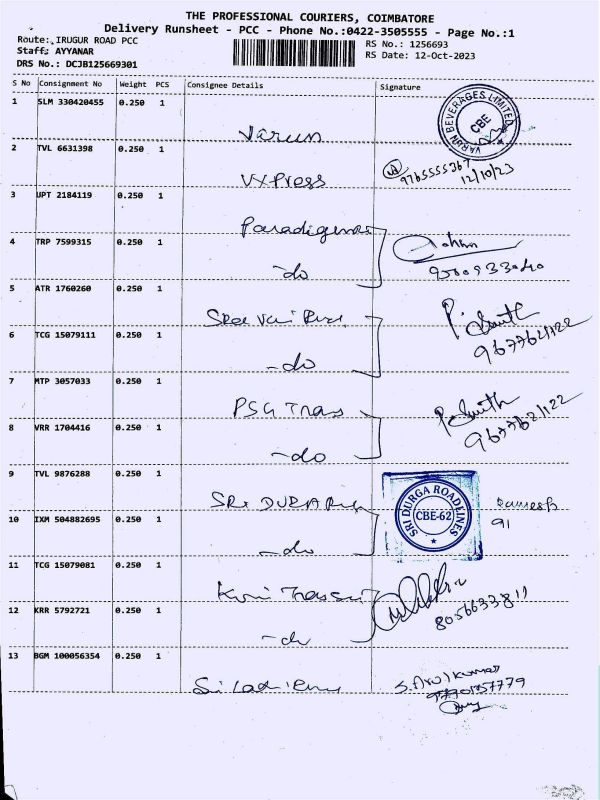 THE PROFESSIONAL COURIERS, COIMBATORE
Delivery Runsheet - PCC - Phone No.:0422-3505555 - Page No.:1
Route: IRUGUR ROAD PCC
RS No.: 1256693
Staff: AYYANAR
RS Date: 12-Oct-2023
DRS No.: DCJB125669301
S No Consignment No Weight PCS Consignee Details Signature
1 SLM 330420455 0.250 1
Varun
VARUN BEVERAGES LIMITED
CBE
2 TVL 6631398 0.250 1
VXPress
9765555367
12/10/23
3 UPT 2184119 0.250 1
4 TRP 7599315 0.250 1
-do
5 ATR 1760260 0.250 1
6 TCG 15079111 0.250 1
-do
7 MTP 3057033 0.250 1
PSG Trans
8 VRR 1704416 0.250 1
-do
9 TVL 9876288 0.250 1
SRI
SRI DURGA ROADLINES
CBE-62
10 IXM 504882695 0.250 1
-do
91
11 TCG 15079081 0.250 1
8056633811
12 KRR 5792721 0.250 1
-do
13 BGM 100056354 0.250 1
S. Arulkumar